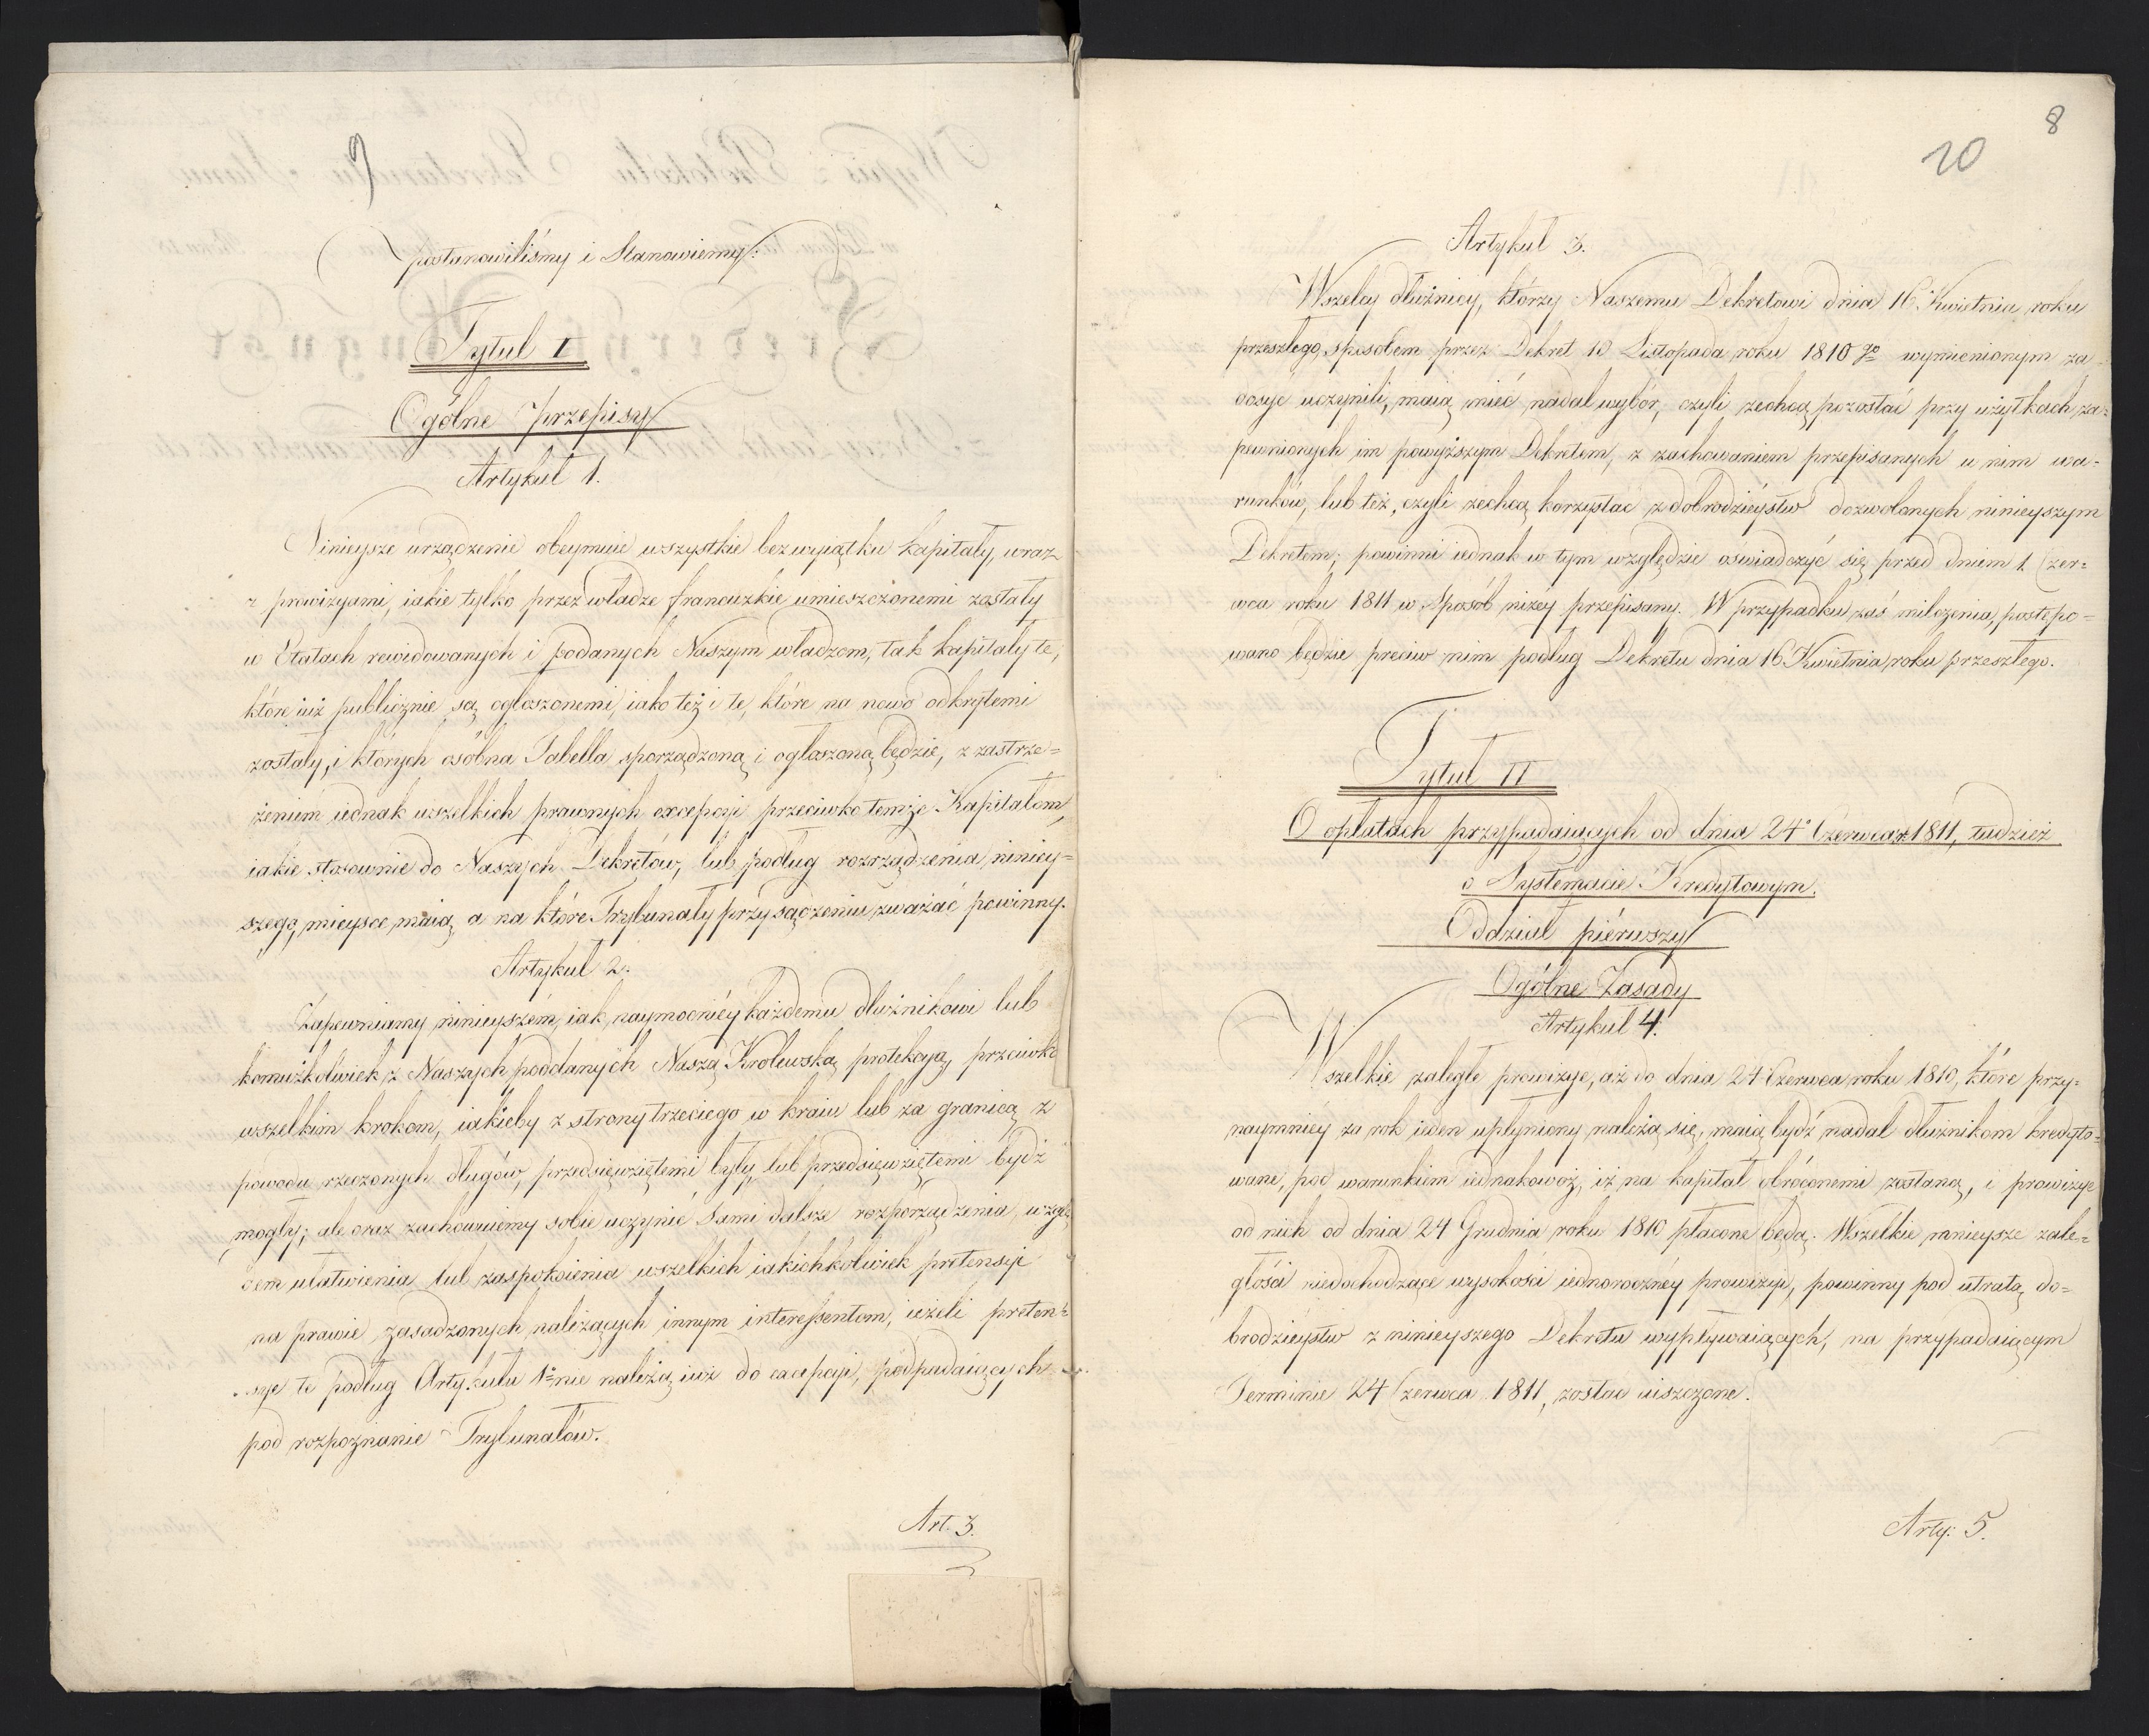 9
postanowiliśmy i Stanowiemy:
Tytuł I
Ogólne przepisy
Artykuł 1.
Ninieysze urządzenie obeymuie wszystkie bez wyiątku kapitały, wraz
z prowizyami, iakie tylko przez władze francuzkie umieszczonemi zostały
w Etatach rewidowanych i podanych Naszym władzom, tak kapitały te,
które iuż publicznie są ogłoszonemi, iako też i te, które na nowo odkrytemi
zostały, i których osóbna Tabella sporządzoną i ogłoszoną będzie, z zastrze=
żeniem iednak wszelkich prawnych excepcyi przeciwko temże Kapitałom,
iakie stosownie do Naszych Dekretów, lub podług rozrządzenia niniey=
szego, mieysce maią, a na które Trybunały przy sądzeniu zważać powinny.
Artykuł 2.
Zapewniamy ninieyszém, iak naymocniéy każdemu dłużnikowi lub
komużkolwiek z Naszych poddanych Naszą Krolewską protekcyą, przeciwko
wszelkim krokom, iakieby z strony trzeciego w kraiu lub za granicą z
powodu rzeczonych długów, przedsięwziętemi były, lub przedsięwziętemi bydź
mogły; ale oraz zachowuiemy sobie uczynić Sami dalsze rozporządzenia, wzglę
dem ułatwienia lub zaspokoienia wszelkich iakichkolwiek pretensyi
na prawie zasadzonych należących innym interessentom, ieżeli preten=
sye te podług Artykułu 1º nie należą iuż do excepcyi, podpadaiących
pod rozpoznanie Trybunałów.
Art. 3.
8
10
Artykuł 3.
Wszelcy dłużnicy, którzy Naszemu Dekretowi dnia 16 Kwietnia roku
przeszłego, sposobem przez Dekret 10 Listopada roku 1810 go wymienionym za=
dosyć uczynili, maią mieć nadal wybór, czyli zechcą pozostać przy użytkach za=
pewnionych im powyższym Dekretem, z zachowaniem przepisanych w nim wa=
runków, lub też, czyli zechcą korzystać z dobrodzieystw dozwolonych ninieyszym
Dekretem; powinni iednak w tym względzie oswiadczyć się przed dniem 1 Czer=
wca roku 1811 w Sposób niżéy przepisany. W przypadku zaś milczenia, postępo=
wano będzie preciw nim podług Dekretu dnia 16 Kwietnia, roku przeszłego.
Tytuł II
O opłatach przypadaiących od dnia 24º Czerwca 1811, tudzież
o Systemacie Kredytowym.
Oddział piérwszy
Ogólne Zasady
Artykuł 4.
Wszelkie zaległe prowizye, aż do dnia 24 Czerwca roku 1810, które przy=
naymniéy za rok ieden upłyniony należą się, maią bydź nadal dłużnikom kredyto=
wane, pod warunkiem iednakowoż, iż na kapitał obróconemi zostaną, i prowizye
od nich od dnia 24 Grudnia roku 1810 płacone będą. Wszelkie mnieysze zale=
głości niedochodzące wysokości iednorocznéy prowizyi, powinny pod utratą do=
brodzieystw z ninieyszego Dekretu wypływaiących, na przypadaiącym
Terminie 24 Czerwca 1811, zostać uiszczone.
Arty: 5.